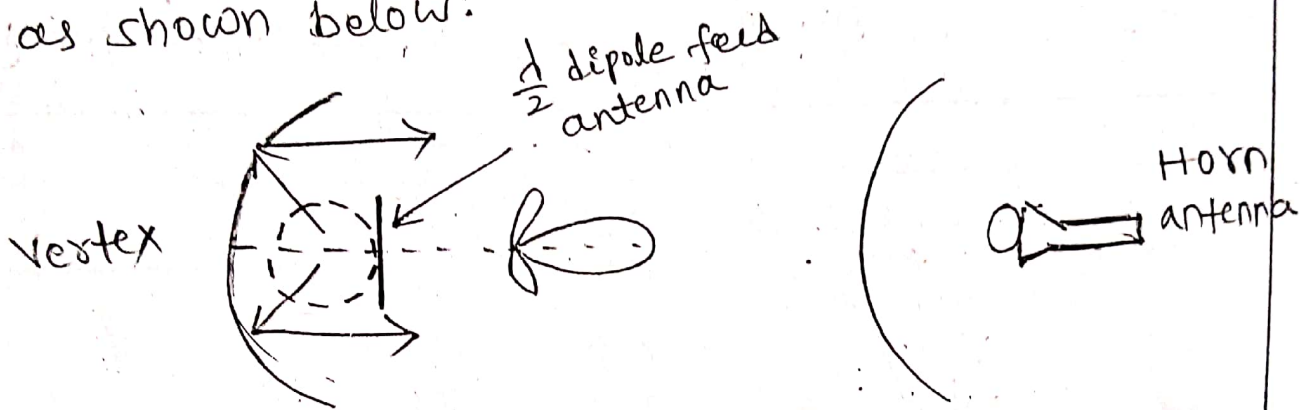 as shown below.
λ/2 dipole feed
antenna
Vertex
Horn
antenna